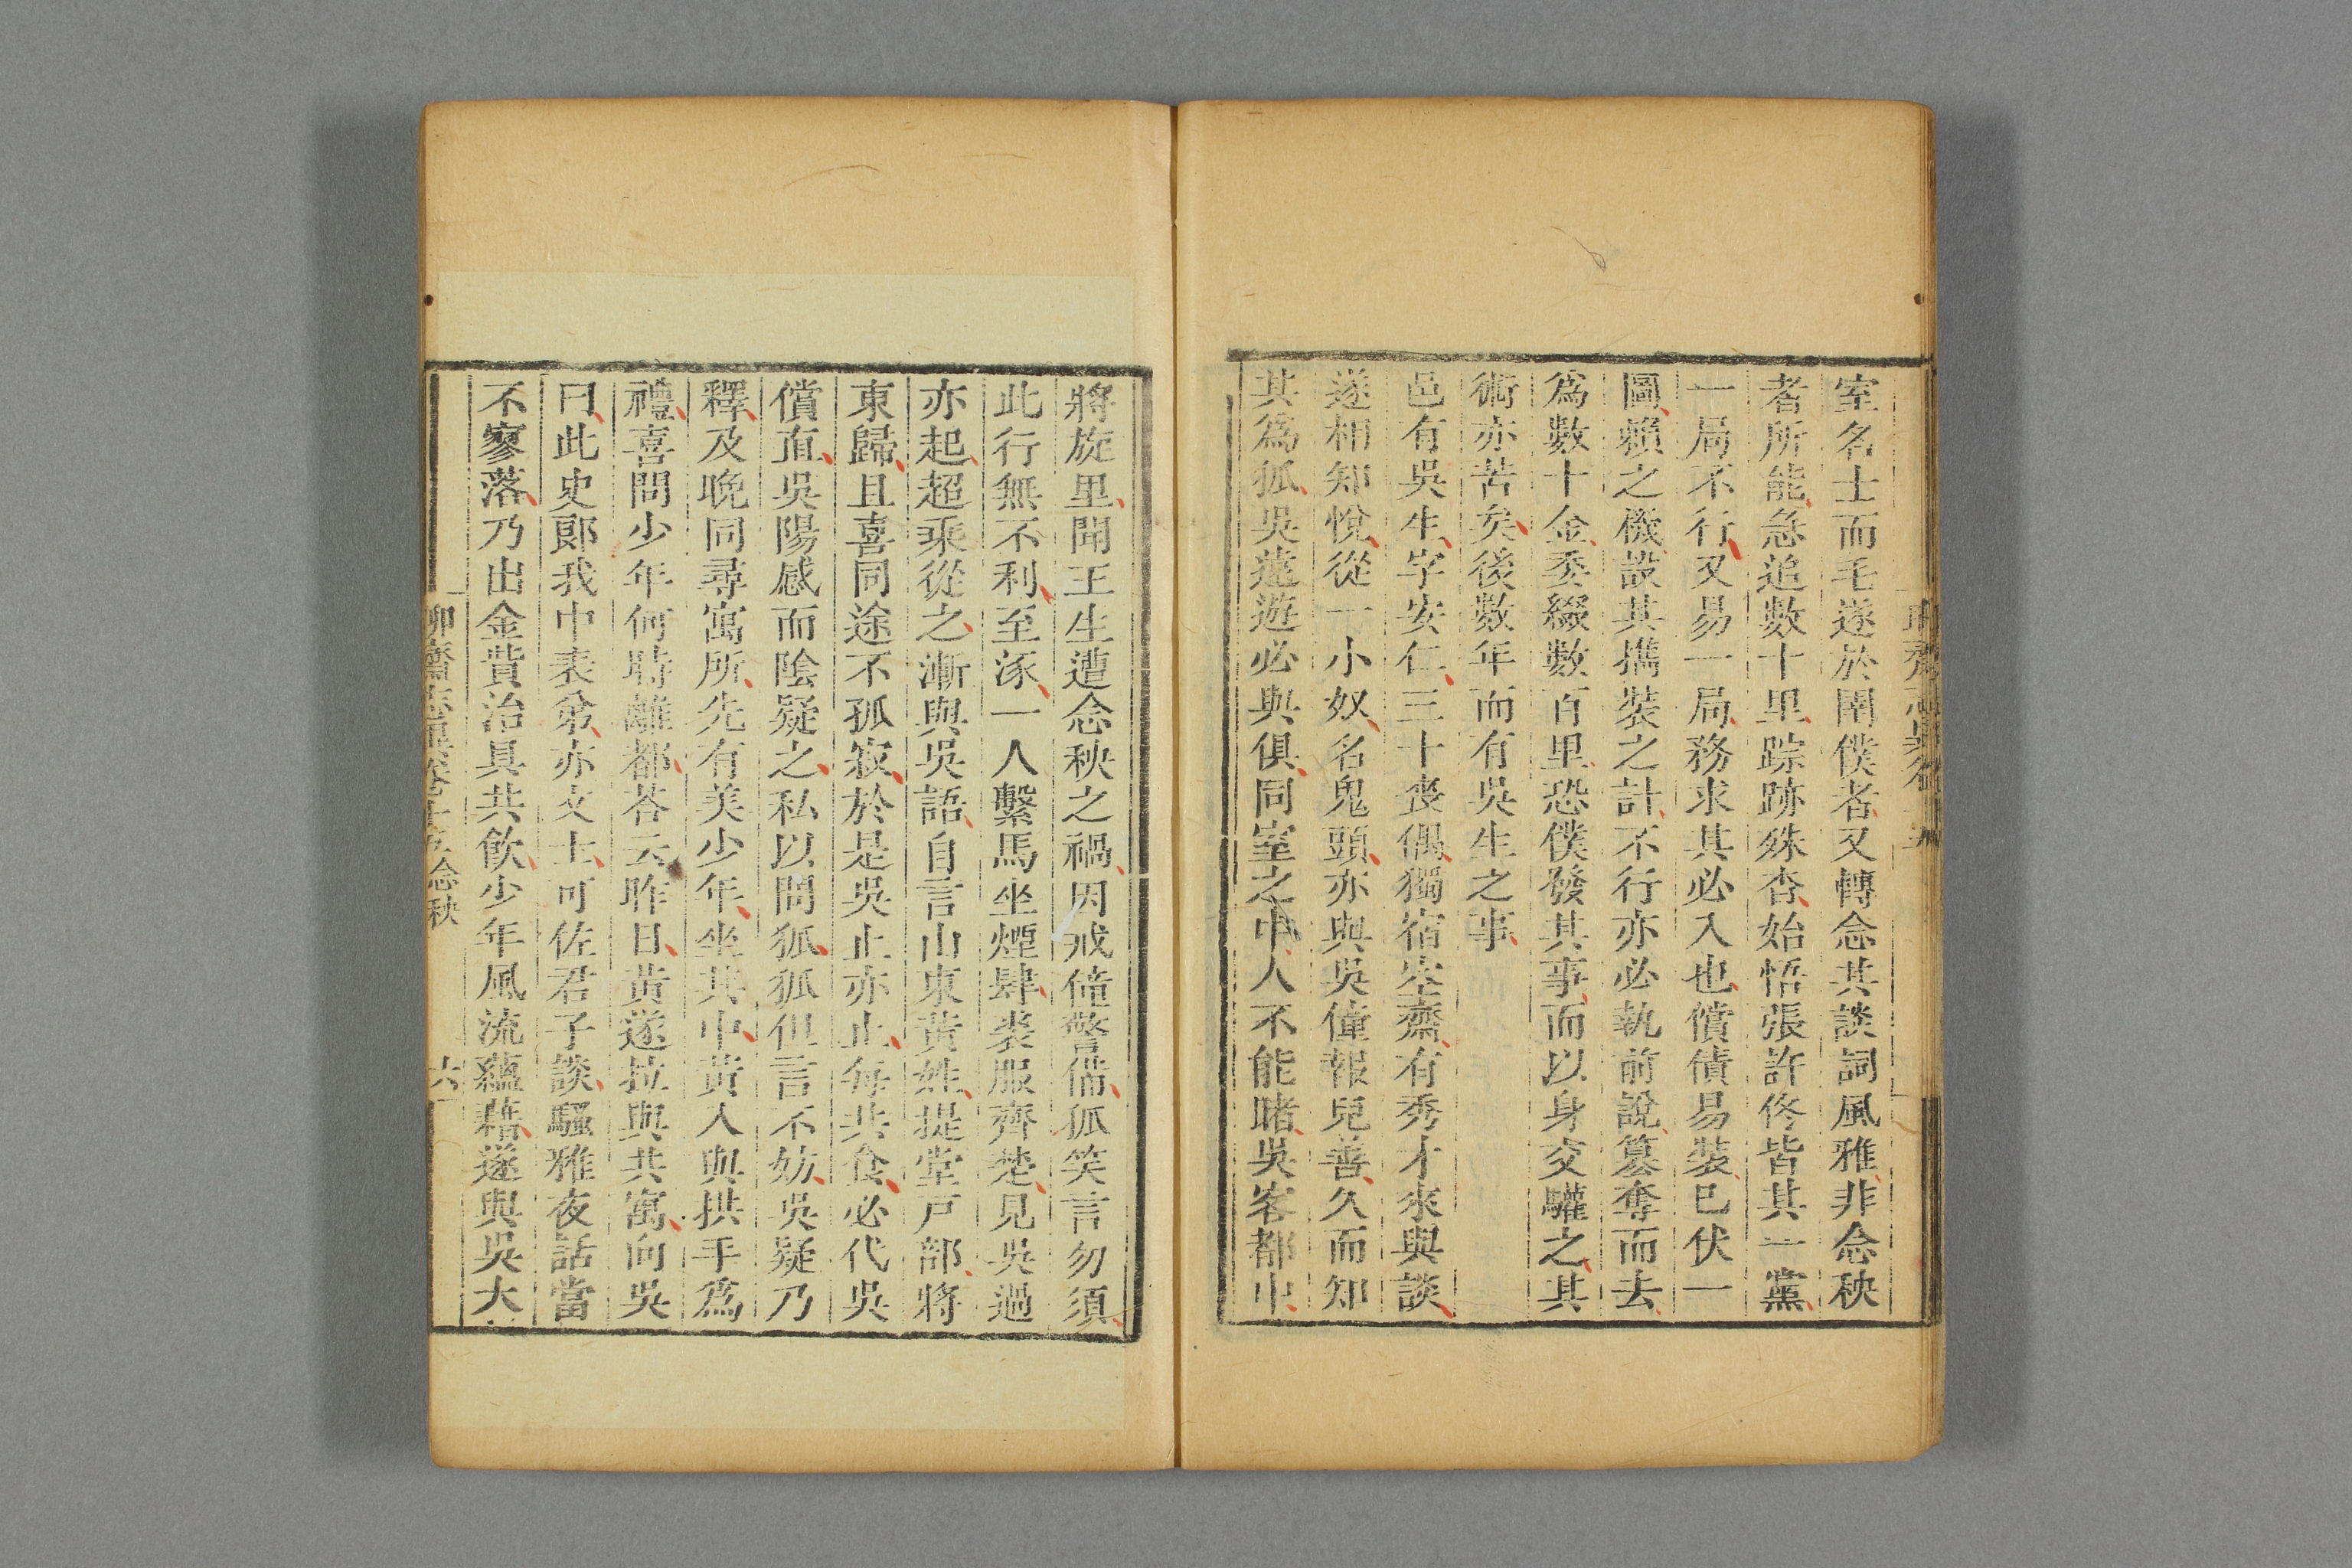 室名士而毛遂於圉僕者又轉念其談詞風雅非念秧
者所能急追數十里踪跡殊杳始悟張許佟皆其一黨
一局不行又易一局務求其必入也償債易裝已伏一
圖賴之機設其攜裝之計不行亦必執前說篡奪而去
爲數十金委綴數百里恐僕發其事而以身交驩之其
術亦苦矣後數年而有吳生之事
邑有吳生字安仁三十喪偶獨宿空齋有秀才來與談
遂相知悅從一小奴名鬼頭亦與吳僮報兒善久而知
其爲狐吳遠遊必與俱同室之中人不能睹吳客都中
將旋里聞王生遭念秧之禍因戒僮警備狐笑言勿須
此行無不利至涿一人繫馬坐煙肆裘服齊楚見吳過
亦起超乘從之漸與吳語自言山東黃姓提堂戸部將
東歸且喜同途不孤寂於是吳止亦止每共食必代吳
償直吳陽感而陰疑之私以問狐狐但言不妨吳疑乃
釋及晚同尋寓所先有美少年坐其中黃入與拱手爲
禮喜問少年何時離都荅云昨日黃遂拉與共寓向吳
曰此史郎我中表弟亦文士可佐君子談騷雅夜話當
不寥落乃出金貲治具共飲少年風流蘊藉遂與吳大
聊齋志異卷十五 念秧 六